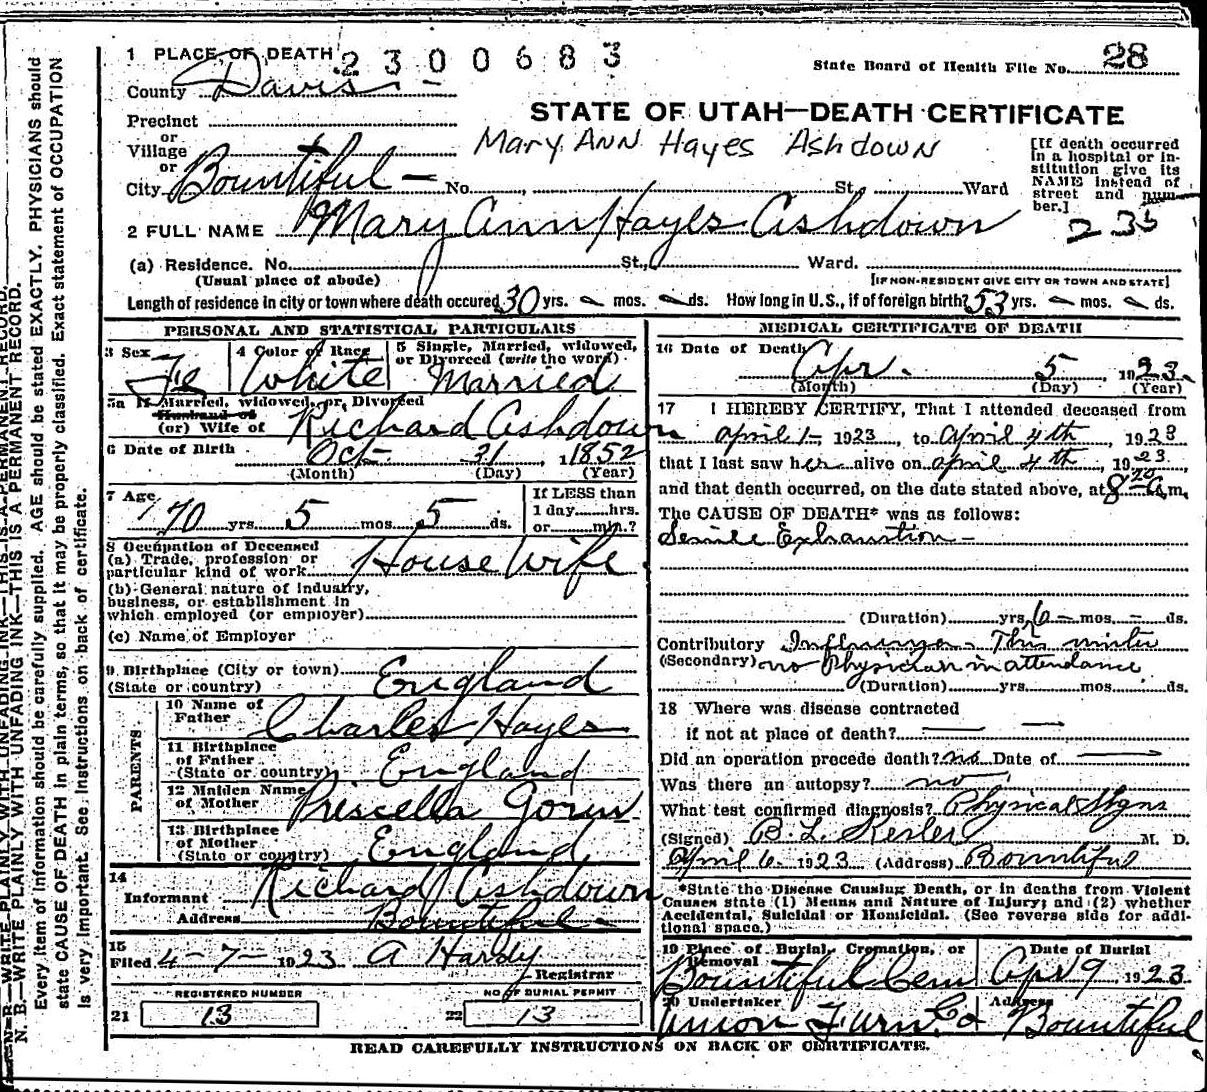 1 PLACE OF DEATH 2300683
State Board of Health File No. 28
County Davis
STATE OF UTAH—DEATH CERTIFICATE
Precinct
or
Village
or
Mary Ann Hayes Ashdown
[If death occurred in a hospital or institution give its NAME instead of street and number.]
City Bountiful — No. , St. Ward
235
2 FULL NAME Mary Ann Hayes Ashdown
(a) Residence. No. St., Ward.
(Usual place of abode) [IF NON-RESIDENT GIVE CITY OR TOWN AND STATE]
Length of residence in city or town where death occured 30 yrs. – mos. – ds. How long in U.S., if of foreign birth? 53 yrs. – mos. – ds.
PERSONAL AND STATISTICAL PARTICULARS
3 Sex Fe
4 Color or Race White
5 Single, Married, widowed, or Divorced (write the word) Married
5a If Married, widowed, or Divorced
Husband of
(or) Wife of Richard Ashdown
6 Date of Birth Oct– 31 , 1 1852
(Month) (Day) (Year)
7 Age 70 yrs. 5 mos. 5 ds.
If LESS than
1 day hrs.
or min.?
8 Occupation of Deceased
(a) Trade, profession or
particular kind of work House Wife
(b) General nature of Industry,
business, or establishment in
which employed (or employer)
(c) Name of Employer
9 Birthplace (City or town)
(State or country) England
PARENTS
10 Name of
Father Charles Hayes
11 Birthplace
of Father
(State or country) England
12 Maiden Name
of Mother Priscella Gorin
13 Birthplace
of Mother
(State or country) England
14
Informant Richard Ashdown
Address Bountiful –
15
Filed 4–7– 1923 A Hardy
Registrar
REGISTERED NUMBER NO OF BURIAL PERMIT
21 13 22 13
MEDICAL CERTIFICATE OF DEATH
16 Date of Death Apr. 5 , 1923.
(Month) (Day) (Year)
17 I HEREBY CERTIFY, That I attended deceased from
april 1– 1923 , to April 4th , 1923
that I last saw her alive on april 4th , 1923
and that death occurred, on the date stated above, at 8 20 a.m.
The CAUSE OF DEATH* was as follows:
Senile Exhaustion –
(Duration) yrs. 6 – mos. – ds.
Contributory Influenza – This winter
(Secondary) no Physician in attendance
(Duration) yrs. mos. ds.
18 Where was disease contracted
if not at place of death? —— —
Did an operation precede death? no Date of ——
Was there an autopsy? no
What test confirmed diagnosis? Physical Signs
(Signed) B. L. Kesler M. D.
April 6, 1923 (Address) Bountiful
*State the Disease Causing Death, or in deaths from Violent
Causes state (1) Means and Nature of Injury; and (2) whether
Accidental, Suicidal or Homicidal. (See reverse side for addi-
tional space.)
19 Place of Burial, Cremation, or
Removal
Bountiful Cem
Date of Burial
Apr 9 , 1923
20 Undertaker
Union Furn. Co
Address
Bountiful
READ CAREFULLY INSTRUCTIONS ON BACK OF CERTIFICATE.
N. B.—WRITE PLAINLY WITH UNFADING INK—THIS IS A PERMANENT RECORD.
N. B.—WRITE PLAINLY WITH UNFADING INK—THIS IS A PERMANENT RECORD.
Every item of Information should be carefully supplied. AGE should be stated EXACTLY. PHYSICIANS should
state CAUSE OF DEATH in plain terms, so that it may be properly classified. Exact statement of OCCUPATION
is very important. See instructions on back of certificate.